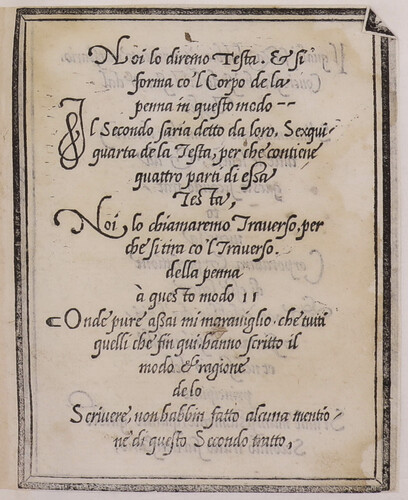 Noi lo diremo Testa. & si
forma co'l Corpo de la
penna in questo modo --
Il Secondo saria detto da loro, Sexqui
quarta de la Testa, per che contiene
quattro parti di essa
Testa,
Noi, lo chiamaremo Traverso, per
che si tira co'l Traverso.
della penna
à questo modo 11
Onde pure assai mi meraviglio, che tutti
quelli che fin qui, hanno scritto il
modo & ragione
de lo
Scrivere, non habbin fatto alcuna mentio
ne di questo Secondo tratto,